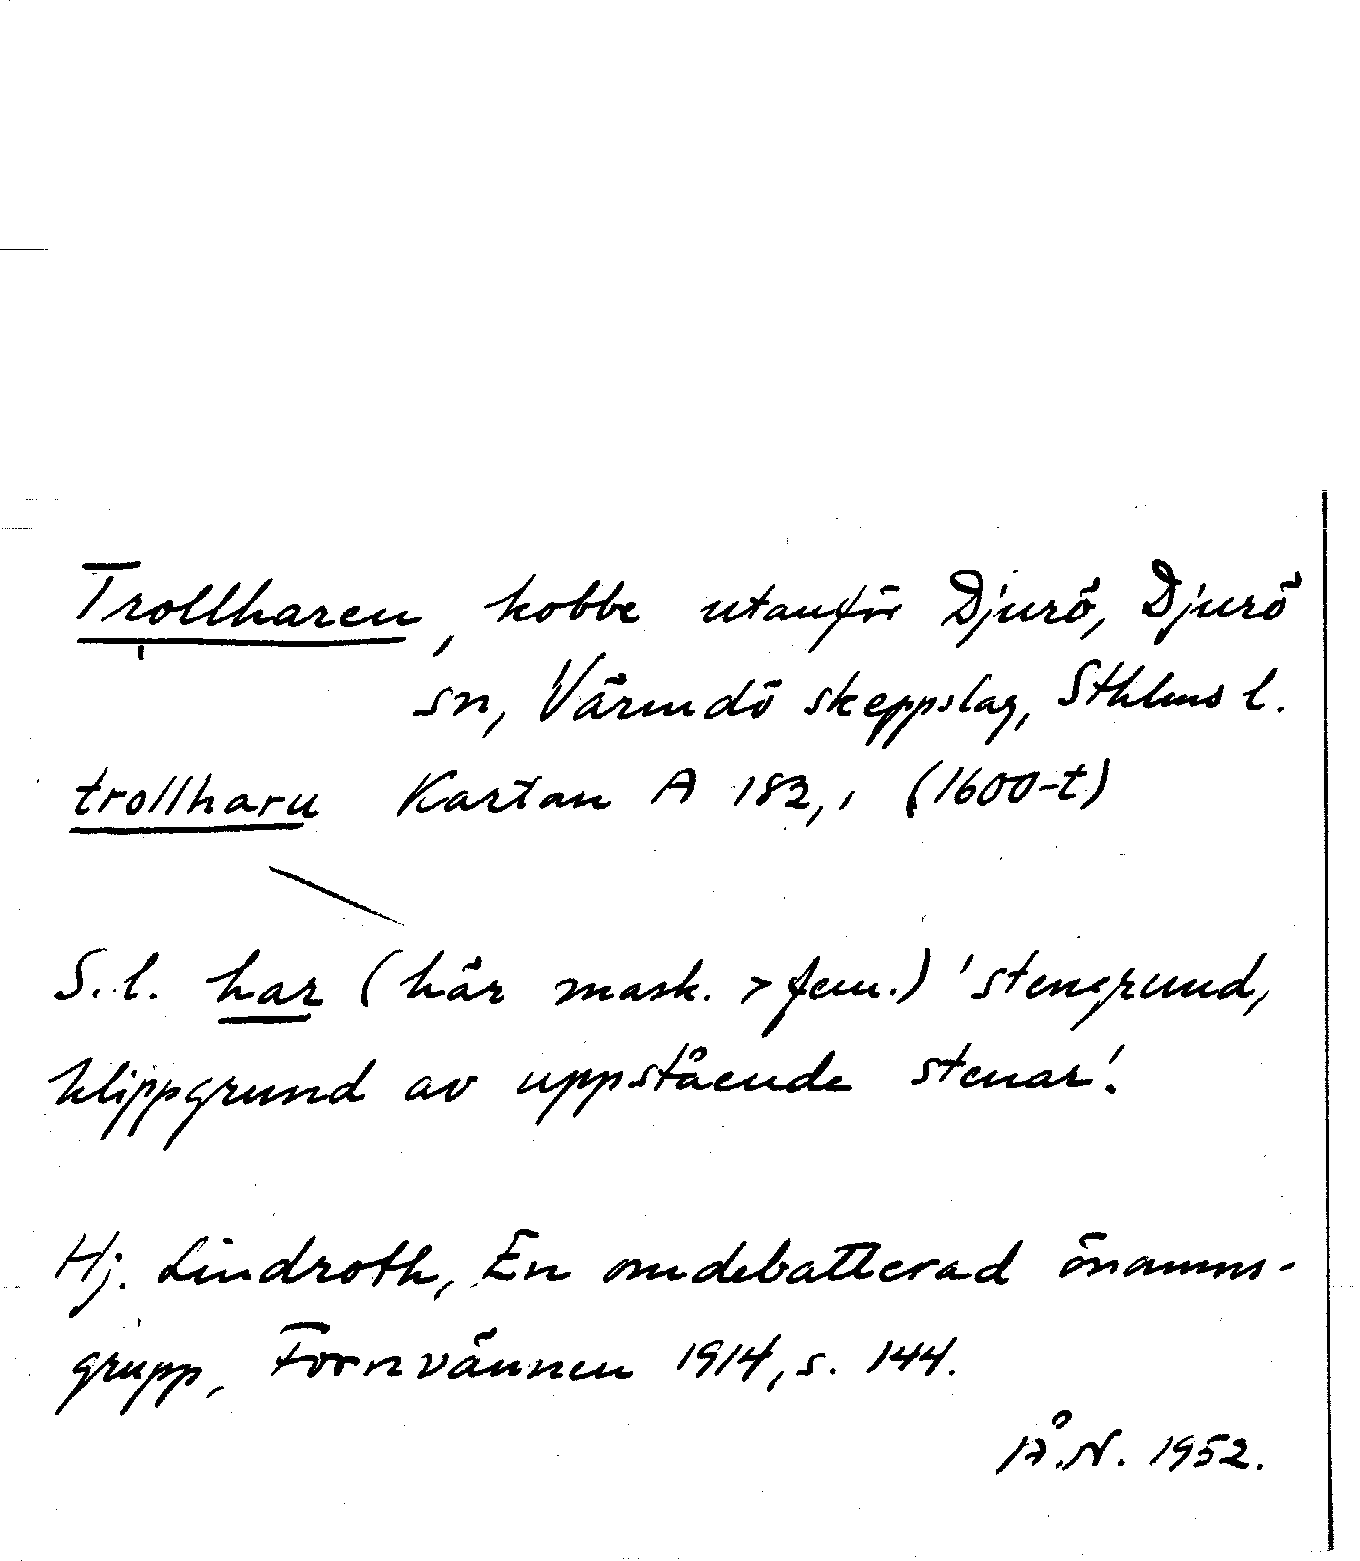 Trollharen, kobbe utanför Djurö, Djurö
sn, Värmdö skeppslag, Sthlms l.
trollharu Kartan A 182,1 (1600-t)
S.l. har (här mask. > fem.) 'stengrund,
klippgrund av uppstående stenar'.
Hj. Lindroth, En omdebatterad önamns-
grupp, Fornvännen 1914, s. 144.
Å.N. 1952.